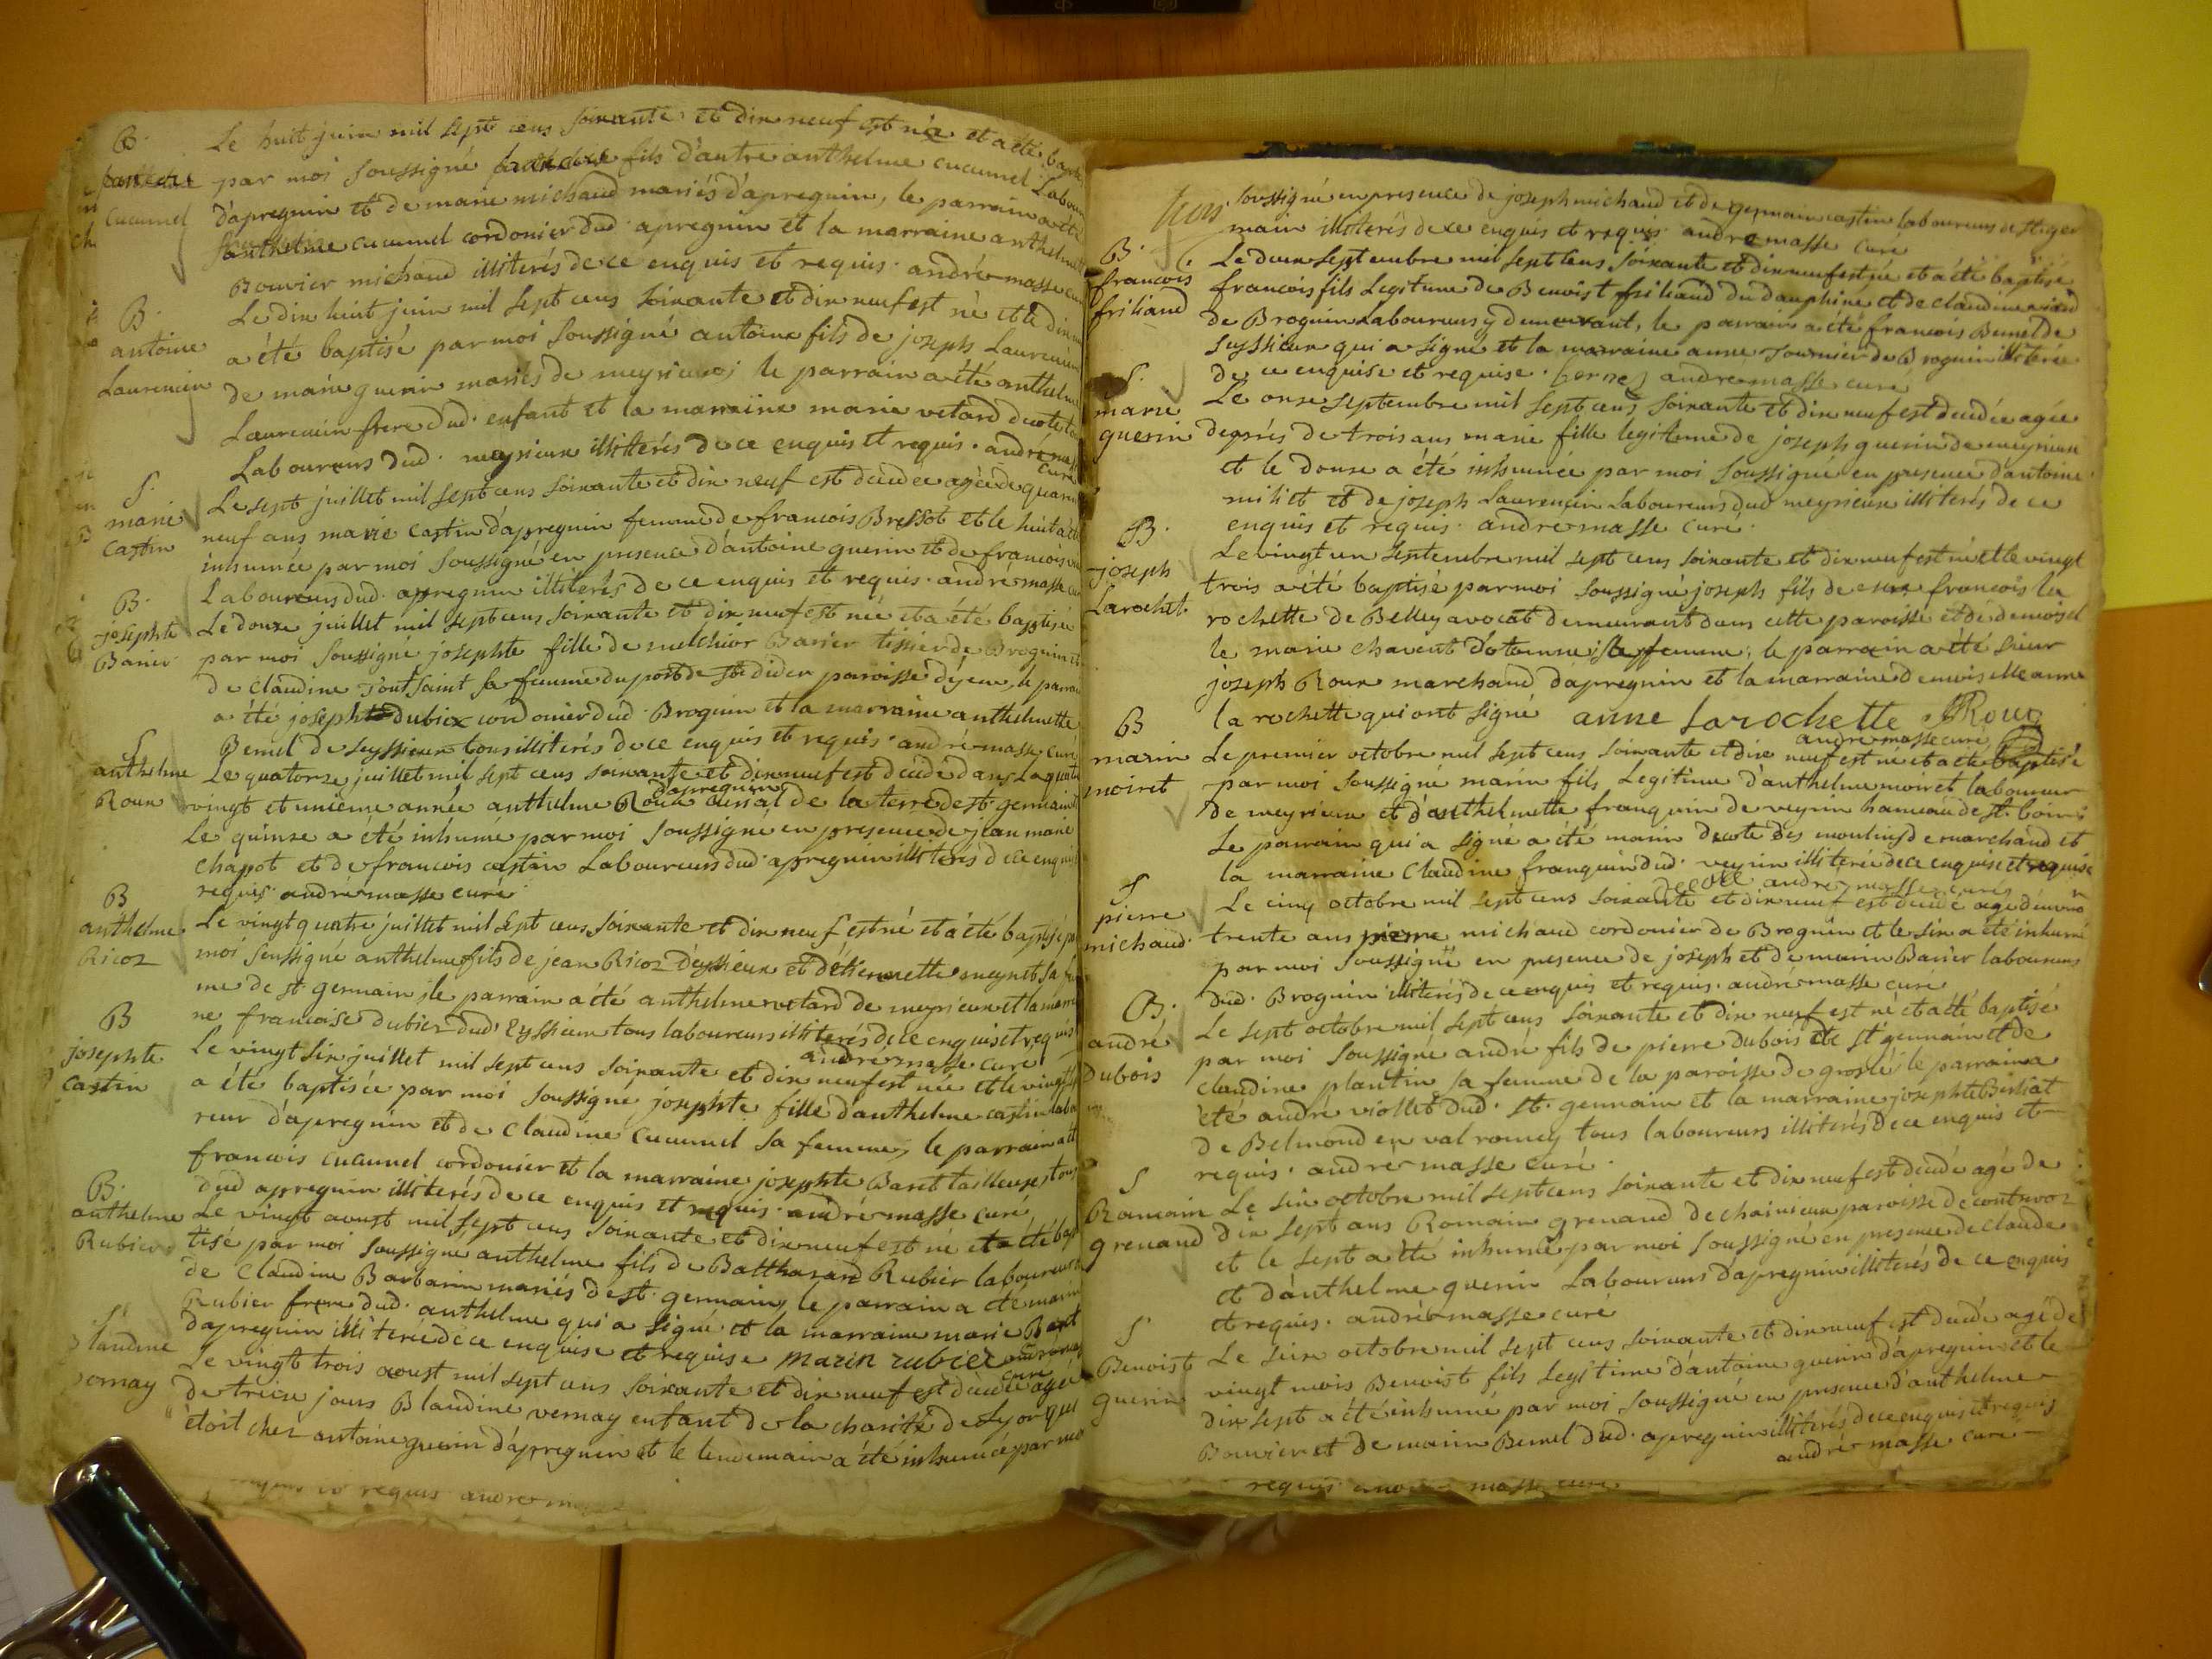 B.
Le huit juin mil sept cens soixante et dix neuf est né et a été bapt
par moi soussigné fils d'autre anthelme cucumel Labour
cucumel
d'apregnin et de marie michaud mariés d'apregnin, le parrain a été
anthelme cucumel cordonier dud. apregnin et la marraine anthelmet
Bouvier michaud illiterés de ce enquis et requis. andré masse cur
B.
antoine
Laurencin
Le dix huit juin mil sept cens soixante et dix neuf est né et le dix
a été baptisé par moi soussigné antoine fils de joseph Laurencin
de marie guerin mariés de meyrieux, le parrain a été anthelm
Laurencin frere dud. enfant et la marraine marie vetard
Laboureurs dud. meyrieux illiterés de ce enquis et requis. andré mass
curé
S.
marie
castin
Le sept juillet mil sept cens soixante et dix neuf est décédée agée de quaran
neuf ans marie castin d'apregnin femme de francois Bressot et le huit a été
inhumée par moi soussigné en presence d'antoine guerin et de francois
Laboureurs dud. apregnin illiterés de ce enquis et requis. andré masse cu
B.
josephte
Barier
Le douze juillet mil sept cens soixante et dix neuf est née et a été baptisée
par moi soussigné josephte fille de melchior Barier tissier de Brognin et
de claudine Tout saint sa femme du port de st didier paroisse d'yenne, le parrai
a été joseph dubiex cordonier dud. Brognin et la marraine anthelmette
Bernel de seyssieux tous illiterés de ce enquis et requis. andré masse curé
S
anthelme
Roux
Le quatorze juillet mil sept cens soixante et dix neuf est décédé dans la quatre
vingt et unième année anthelme Roux d'apregnin de la terre de st. germain
Le quinze a été inhumé par moi soussigné en presence de jean marie
chapot et de francois castin Laboureurs dud. apregnin illiterés de ce enquis
requis. andré masse curé
B
anthelme
Ricoz
Le vingt quatre juillet mil sept cens soixante et dix neuf est né et a été baptisé p
moi soussigné anthelme fils de jean Ricoz d'eyssieux et d'étiennette meynet sa fe
me de st. germain, le parrain a été anthelme vetard de meyrieux et la marra
ne francoise dubier dud. Eyssieux tous laboureurs illiterés de ce enquis et requis
andré masse curé
B
josephte
castin
Le vingt six juillet mil sept cens soixante et dix neuf est née et le vingt
a été baptisée par moi soussigné josephte fille d'anthelme castin labo
reur d'apregnin et de claudine cucumel sa femme, le parrain a ét
francois cucumel cordonier et la marraine josephte Baret tailleuse, tous
dud apregnin illiterés de ce enquis et requis. andré masse curé
B.
anthelme
Rubier
Le vingt aoust mil sept cens soixante et dix neuf est né et a été bap
tisé par moi soussigné anthelme fils de Balthazard Rubier laboureur
de claudine Barbarin mariés de st. germain, le parrain a été marin
Rubier frere dud. anthelme qui a signé et la marraine marie
d'apregnin illiterée de ce enquise et requise marin rubier
curé
S
landine
ernay
Le vingt trois aoust mil sept cens soixante et dix neuf est décédée agée
de treize jours Blandine vernay enfant de la charité de Lyon qui
étoit chez antoine guerin d'apregnin et le lendemain a été inhumée par moi
requis andré
soussigné en presence de joseph michaud et de germain castin laboureurs de st. ger
main illiterés de ce enquis et requis. andré masse curé
B.
francois
friliand
Le deux septembre mil sept cens soixante et dix neuf est né et a été baptisé
francois fils Legitime de Benoist friliand du dauphiné et de claudine
de Brognin Laboureurs y demeurant, le parrain a été francois Bernel de
seyssieux qui a signé et la marraine anne Tournier de Brognin illiterée
de ce enquise et requise. andré masse curé
S.
marie
guerin
Le onze septembre mil sept cens soixante et dix neuf est décédée agée
de près de trois ans marie fille legitime de joseph guerin de meyrieux
et le douze a été inhumée par moi soussigné en presence d'antoine
miliet et de joseph Laurencin Laboureurs dud meyrieux illiterés de ce
enquis et requis. andré masse curé.
B.
joseph
Larochet.
Le vingt un septembre mil sept cens soixante et dix neuf est né et le vingt
trois a été baptisé par moi soussigné joseph fils de francois la
rochette de Belley avocat demeurant dans cette paroisse et de demoisel
le marie chavent sa femme, le parrain a été sieur
joseph Roux marchand d'apregnin et la marraine demoiselle anne
la rochette qui ont signé anne Larochette JRoux
andré masse curé
B
marin
moiret
Le premier octobre mil sept cens soixante et dix neuf est né et a été baptisé
par moi soussigné marin fils Legitime d'anthelme moiret laboureur
de meyrieux et d'anthelmette franquin de veyrin hameau de st. boin
Le parrain qui a signé a été marin decote des moulins de marchand et
la marraine claudine franquin dud. veyrin illiterée de ce enquise et requise
decote andré masse curé
S
pierre
michaud
Le cinq octobre mil sept cens soixante et dix neuf est décédé agé d'environ
trente ans pierre michaud cordonier de Brognin et le six a été inhumé
par moi soussigné en presence de joseph et de marin Barier laboureurs
dud. Brognin illiterés de ce enquis et requis. andré masse curé
B.
andré
dubois
Le sept octobre mil sept cens soixante et dix neuf est né et a été baptisé
par moi soussigné andré fils de pierre dubois de st germain et de
claudine plantin sa femme de la paroisse de groslé, le parrain a
été andré viollet dud. st. germain et la marraine josephte Birliat
de Belmond en val romey tous laboureurs illiterés de ce enquis et
requis. andré masse curé.
S
Romain
grenaud
Le six octobre mil sept cens soixante et dix neuf est décédé agé de
dix sept ans Romain grenaud de chainieux paroisse de contrevoz
et le sept a été inhumé par moi soussigné en presence de claude
et d'anthelme guerin Laboureurs d'apregnin illiterés de ce enquis
et requis. andré masse curé
S
Benoist
guerin
Le seize octobre mil sept cens soixante et dix neuf est décédé agé de
vingt mois Benoist fils legitime d'antoine guerin d'apregnin et le
dix sept a été inhumé par moi soussigné en presence d'anthelme
Bouvier et de marin Bernel dud. apregnin illiterés de ce enquis et requis
andré masse curé
requis masse curé.